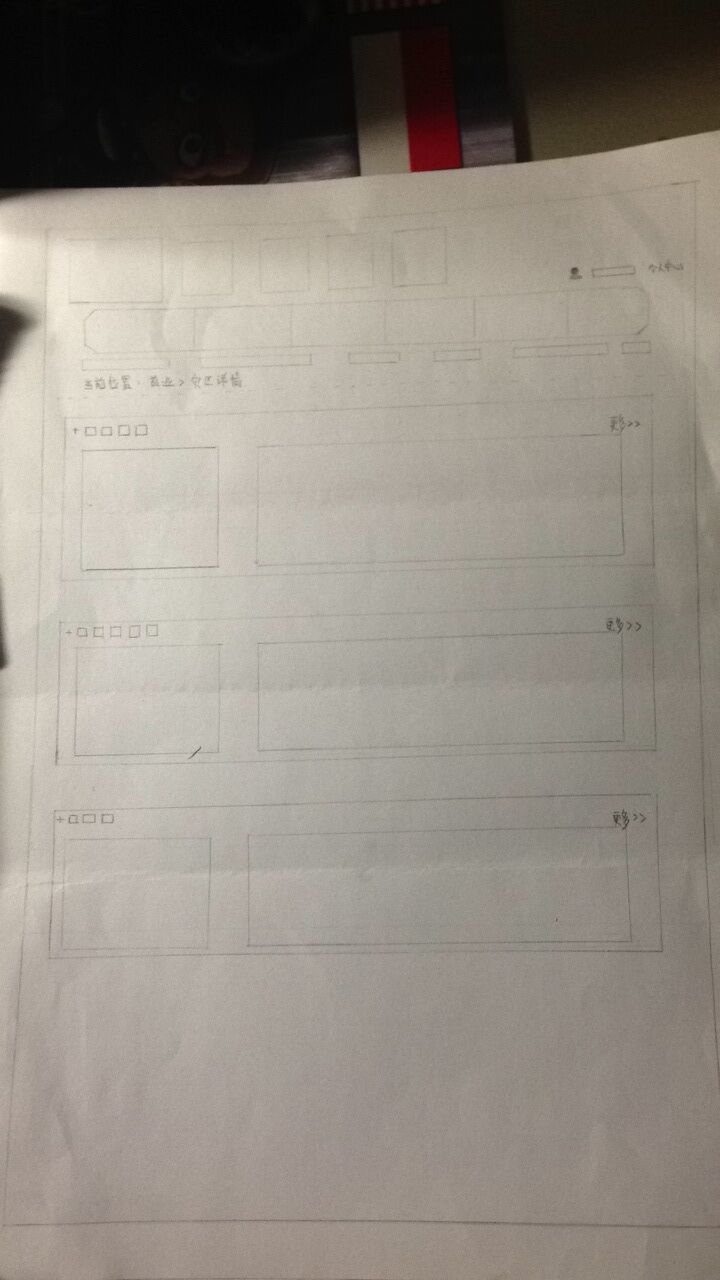 个人中心
当前位置：首页 > 灾区详情
更多>>
更多>>
更多>>